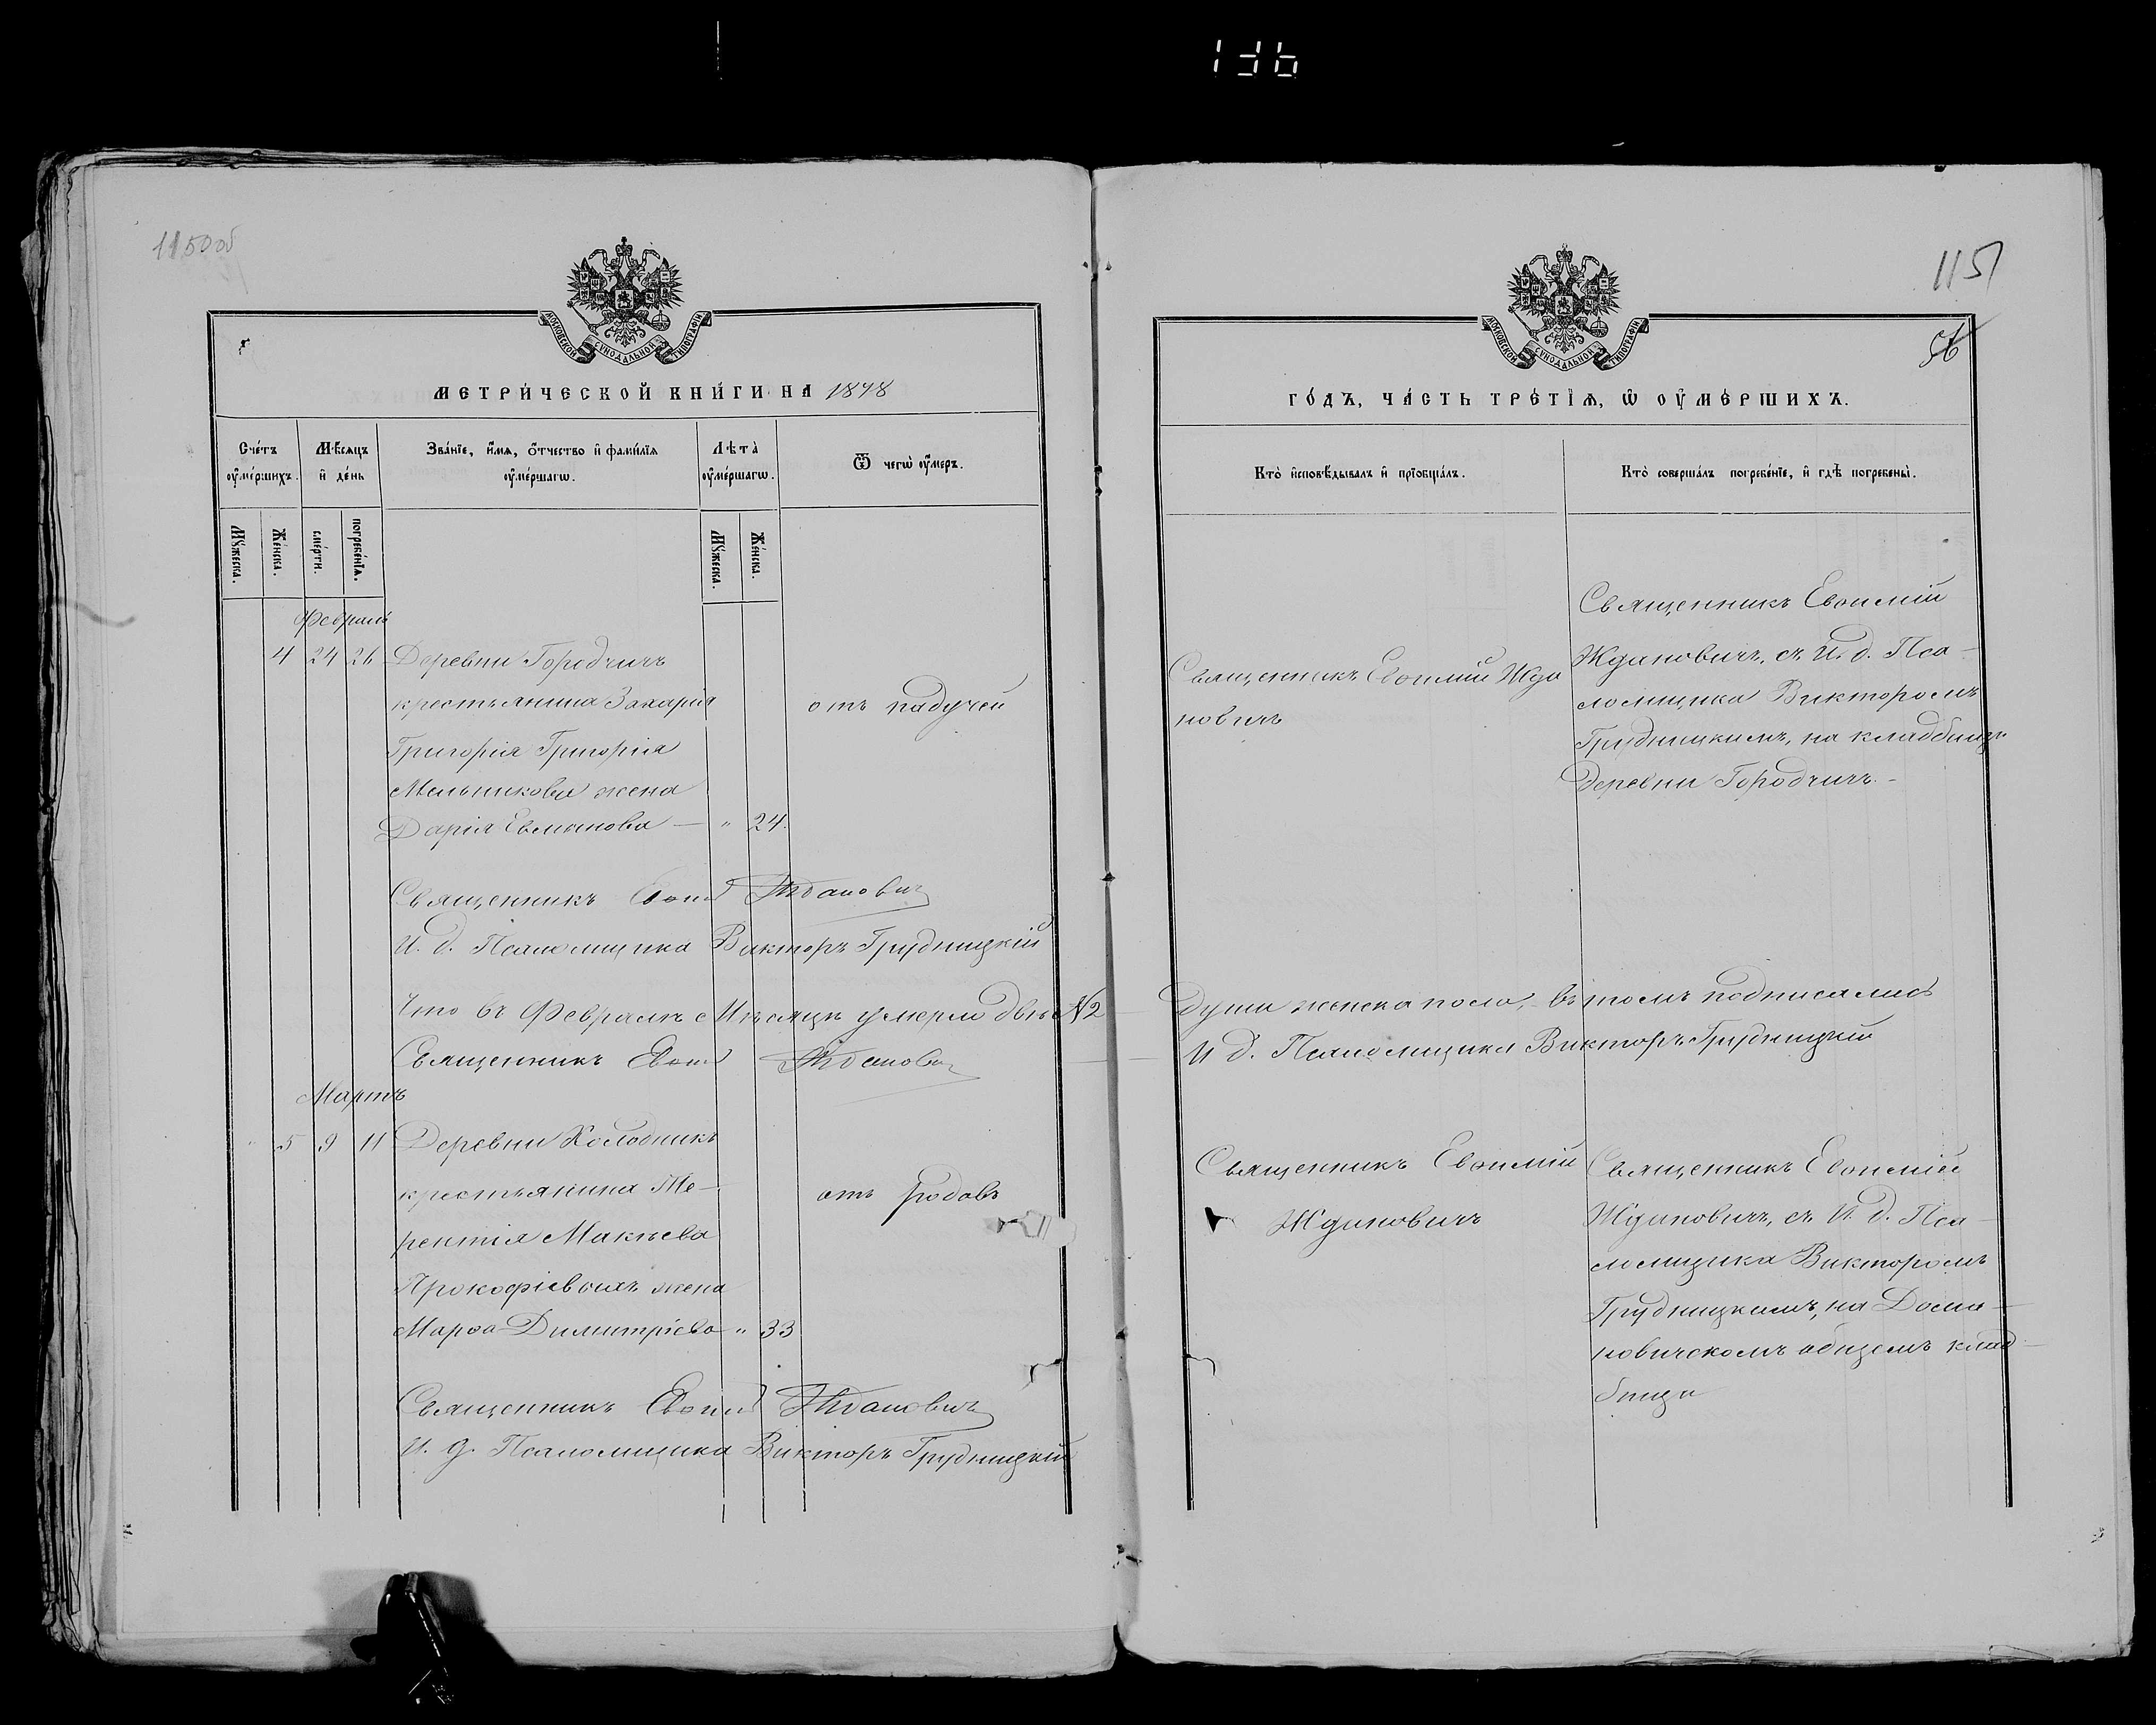 136
1150об
1151
56
МОСКОВСКОЙ СѴНОДАЛЬНОЙ ТИПОГРАФІИ
МЕТРИ́ЧЕСКОЙ КНИ́ГИ НА 1878
Сче́тъ оу҆ме́ршихъ.
Мѣ́сяцъ и҆ де́нь
Зва́нїе, и҆́мѧ, ѻ҆́тчество и҆ фами́лїѧ оу҆ме́ршагѡ.
Лѣ́та оу҆ме́ршагѡ.
Ѿ чегѡ̀ оу҆́меръ.
Мꙋ́жеска.
Же́нска.
сме́рти.
погребе́нїѧ.
Мꙋ́жеска.
Же́нска.
Февраль
4 24 26 Деревни Городчичъ
крестьянина Захарія
Григорія Григорія
Мельникова жена
Дарія — " 24.
отъ падучей
Священникъ Жданович
И. д. Псаломщика Викторъ Грудницкій
Что въ Февралѣ Мѣсяцѣ умерло двѣ №2
Священникъ Жданович
Мартъ
" 5 9 11 Деревни Холодникъ
крестьянина Те-
рентія Макѣева
Прокофіевоихъ жена
Марѳа Димитріева " 33
отъ родовъ
Священникъ Жданович
И. д. Псаломщика Викторъ Грудницкій
МОСКОВСКОЙ СѴНОДАЛЬНОЙ ТИПОГРАФІИ
ГО́ДЪ, ЧА́СТЬ ТРЕ́ТЇѦ, Ѡ҆ ОУ҆МЕ́РШИХЪ.
Кто̀ и҆сповѣ́дывалъ и҆ прїѡбща́лъ.
Кто̀ соверша́лъ погребе́нїе, и҆ гдѣ̀ погребены̀.
Священникъ Евѳимій Жда
новичъ
Священникъ Евѳимій
Ждановичъ, съ И. д. Пса-
ломщика Викторомъ
Грудницкимъ, на кладбищѣ
Деревни Городчичъ.-
Души женска пола, въ томъ подписались
И д. Псаломщика Викторъ Грудницкій
Священникъ Евѳимій
Ждановичъ
Священникъ Евѳимій
Ждановичъ, съ И. д. Пса-
ломщика Викторомъ
Грудницкимъ, на Дома-
новичскомъ общемъ клад-
бищѣ